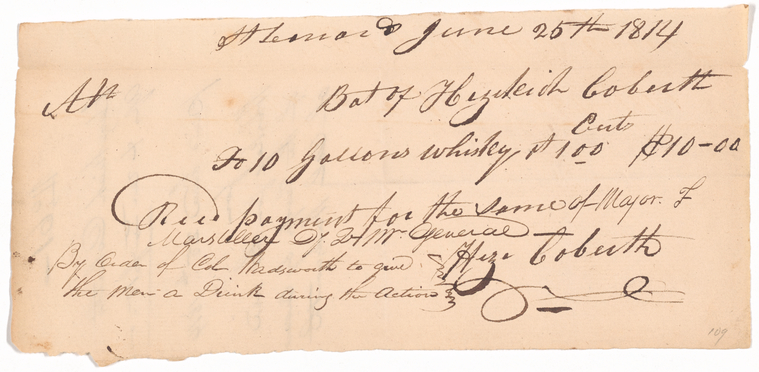 St Leonard June 25th 1814
Bot of Hezekiah Coberth
Cents
To 10 Gallons whisky, at 100 $10-00
Recd payment for the same of Major. F
Marsteller Dy. Qr Mr General
By Order of Col Wadsworth to give
the Men a Drink during the Action
Heze Coberth
109